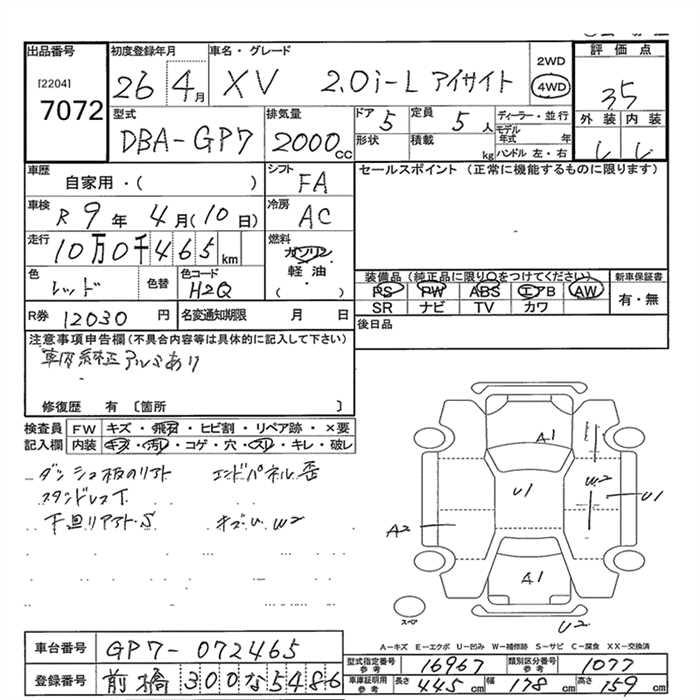 出品番号
[2204]
7072
初度登録年月
26 4月
車名・グレード
XV 2.0i-L アイサイト
2WD
4WD
評価点
3.5
外装 内装
型式
DBA-GP7
排気量
2000cc
ドア 5
形状
定員 5人
積載 kg
ディーラー・並行
モデル年式 年
ハンドル 左・右
車歴
自家用・( )
シフト
FA
車検
R 9年 4月(10日)
冷房
AC
走行
10万0千465km
燃料
ガソリン
軽油
( )
色
レッド
色替
色コード
H2Q
R券 12030円
名変通知期限 月 日
セールスポイント (正常に機能するものに限ります)
装備品(純正品に限り○をつけてください)
PS PW ABS エアB AW
SR ナビ TV カワ
新車保証書
有・無
後日品
注意事項申告欄(不具合内容等は具体的に記入して下さい)
車内純正アルミあり
修復歴 有 〔箇所 〕
検査員記入欄
FW キズ・飛石・ヒビ割・リペア跡・×要
内装 キズ・汚れ・コゲ・穴・スリ・キレ・破レ
A1
U1
W2
U1
A2
A1
U2
スペア
A-キズ E-エクボ U-凹み W-補修跡 S-サビ C-腐食 XX-交換済
車台番号 GP7-072465
登録番号 前橋 300な5486
型式指定番号 参考 16967
類別区分番号 参考 1077
車両証明用 参考 長さ 445cm 幅 178cm 高さ 159cm